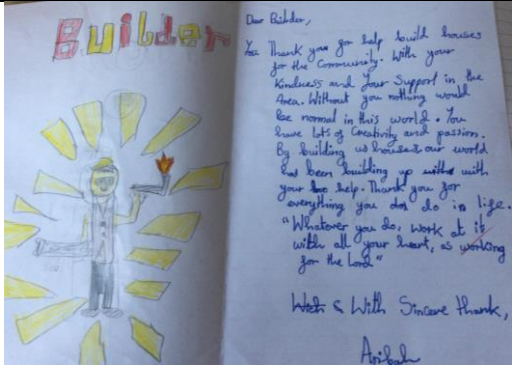 Builder
Dear Builder,
You Thank you for help build houses
for the Community. With your
Kindness and Your Support in the
Area. Without you nothing would
be normal in this world. You
have lots of Creativity and passion.
By building us houses our world
has been building up with
your help. Thank you for
everything you do in life.
"Whatever you do, work at it
with all your heart, as working
for the Lord"
With Sincere thank,